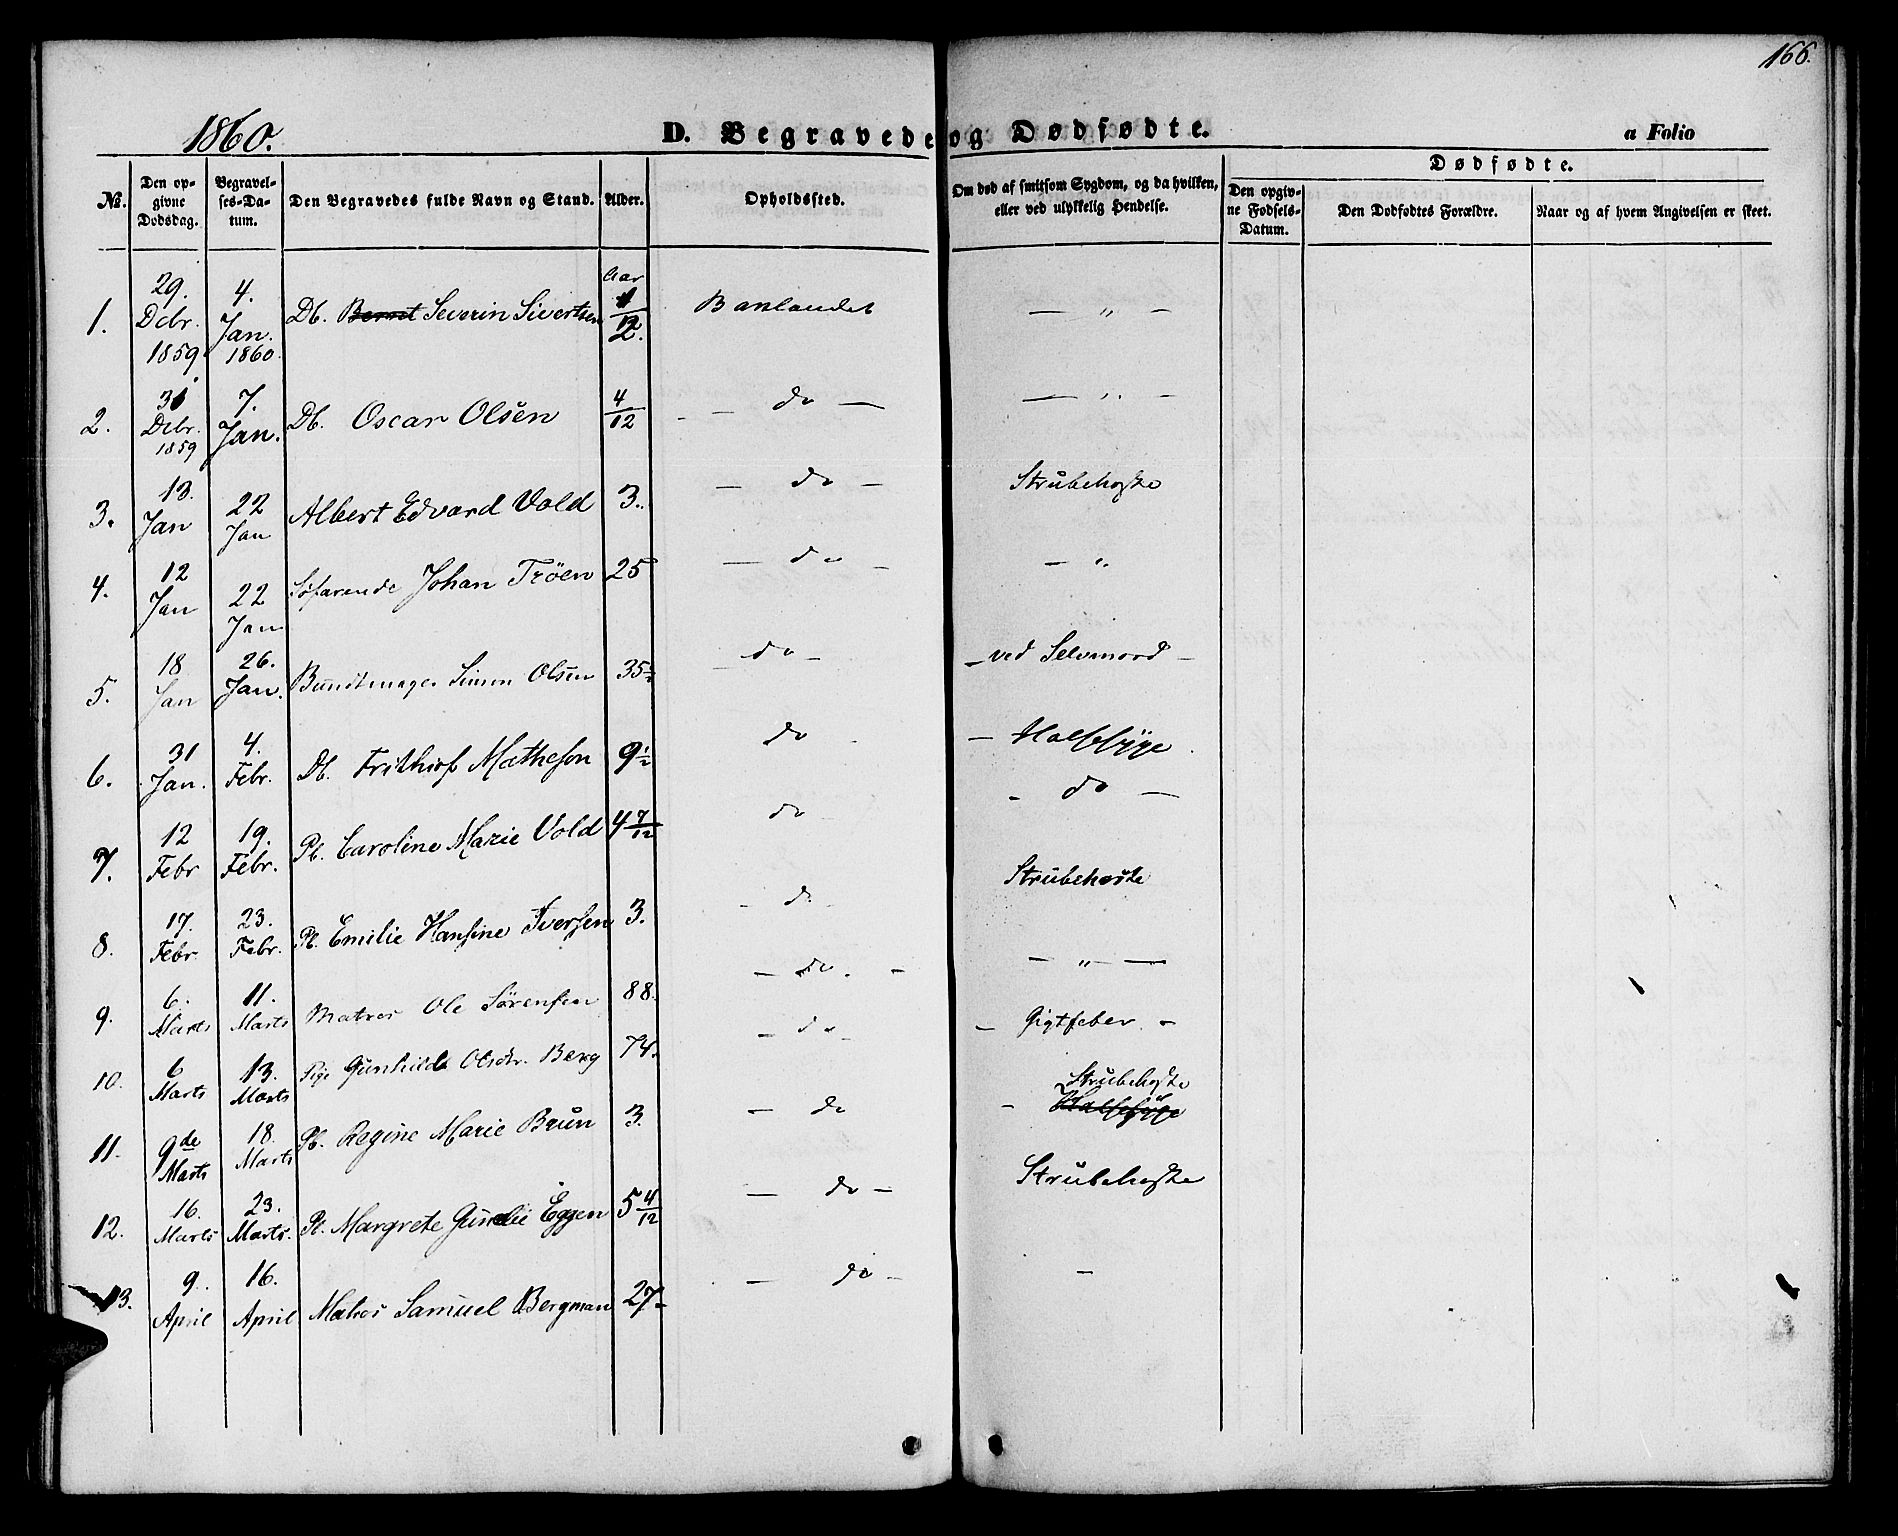 166.
1860.
D. Begravede og Dødfødte.
a Folio
No.
Den opgivne Dødsdag.
Begravelses-Datum.
Den Begravedes fulde Navn og Stand.
Alder.
Opholdssted.
Om død af smitsom Sygdom, og da hvilken, eller ved ulykkelig Hendelse.
Dødfødte.
Den opgivne Fødsels-Datum.
Den Dødfødtes Forældre.
Naar og af hvem Angivelsen er skeet.
Aar
1. 29. Dcbr. 1859 4. Jan. 1860. Db. Bernt Severin Sivertsen 1/12 Baklandet — „ —
2. 31 Dcbr. 1859 7. Jan. Db. Oscar Olsen 4/12 — do — — „ —
3. 13. Jan 22 Jan Albert Edvard Vold 3. — do — Strubehoste
4. 12 Jan 22 Jan Søfarende Johan Trøen 25 — do — — „
5. 18 Jan 26. Jan. Bundtmager Simon Olsen 35½ — do — — ved Selvmord —
6. 31 Jan. 4. Febr. Db. Frithiof Matheson 9½ do — Halssyge
7. 12 Febr 19. Febr. Pb. Caroline Marie Vold 4 7/12 do - do —
8. 17. Febr 23. Febr. Pb. Emilie Hansine Iversen 3. - do - Strubehoste
9. 6. Marts 11. Marts Matros Ole Sørensen 88. — do. — — „ —
10. 6 Marts 13. Marts Pige Gunhild Olsdtr. Berg 74. — do — Gigtfeber —
11. 9de Marts 18. Marts Pb. Regine Marie Brun 3. — do - Strubehoste Halssyge
12. 16. Marts 23. Marts. Pb. Margrete Eggen 5 4/12 — do — Strubehoste
13. 9. April 16. April Matros Samuel Bergman 27. — do — -